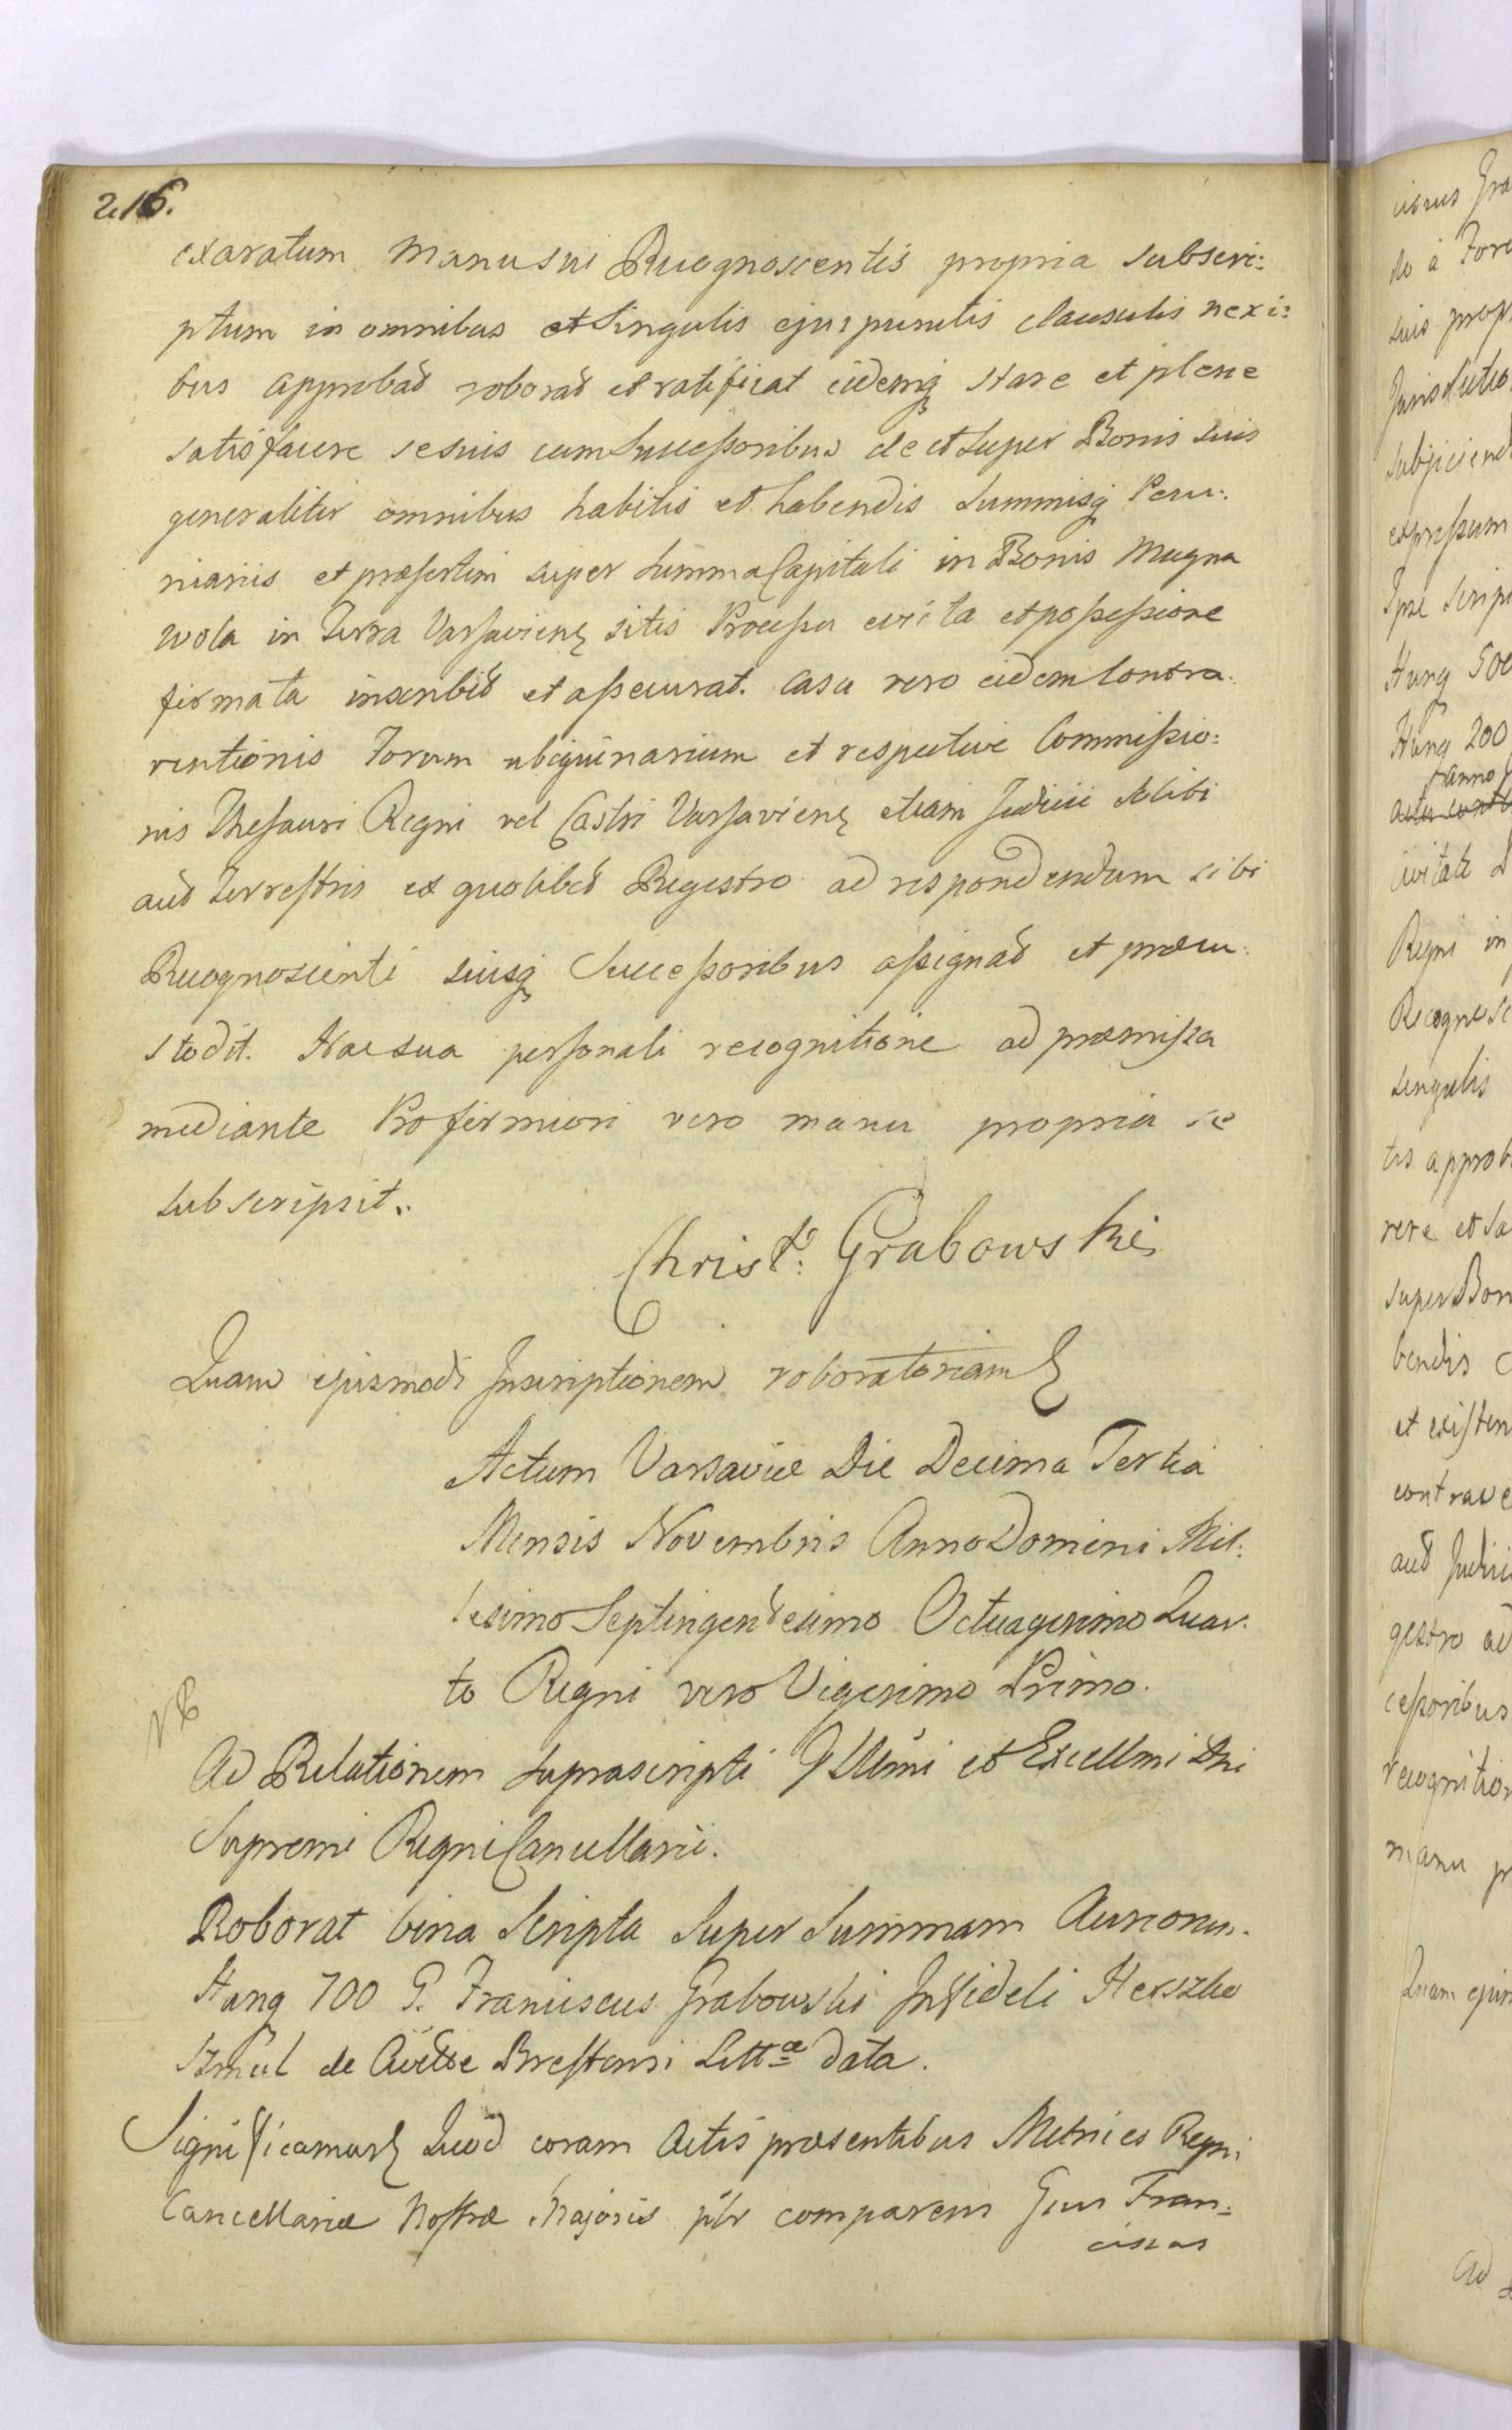 216.
exaratum manu sui Recognoscentis propria subscri:
ptum in omnibus et Singulis ejus punctis clausulis nexi:
bus approbat roborat et ratificat eidemq stare et plene
satisfacere se suis cum Successoribus de et super Bonis suis
generaliter omnibus habitis et habendis Summisq Pecu:
niariis et præsertim super Summa Capitali in Bonis Magna
Wola in Terra Varsaviens sitis Processu evicta et possessione
firmata inscribit et assecurat. Casu vero eidem Contra:
ventionis Forum ubiquinarium et respective Commissio:
nis Thesauri Regni vel Castri Varsaviens etiam Judicii
aut Terrestris ex quolibet Regestro ad respondendum sibi
Recognoscenti suisq Successoribus assignat et præcu:
stodit. Hac sua personali recognitione ad præmissa
mediante Pro firmiori vero manu propria se
subscripsit.
Christ: Grabowski
Quam ejusmodi Inscriptionem roboratoriam
Actum Varsaviæ Die Decima Tertia
Mensis Novembris Anno Domini Mil:
lesimo Septingentesimo Octuagesimo Quar:
to Regni vero Vigesimo Primo.
Ad Relationem suprascripti Illmi et Excellmi Dni
Supremi Regni Cancellarii.
Roborat bina Scripta Super Summam Aureorum
Hung 700 G. Franciscus Grabowski Infideli Herszko
Szmul de Brestensi Littæ data.
Significamus Quod coram Actis præsentibus Metrices Regni
Cancellariæ Nostræ Majoris pltr comparens Gsus Fran:
ciscus
do a Foro
suis prop
subjiciend
expressum
Ipse Scrip
Hung 500
Hung 200
Regni in
Recognosc
singulis
tis approb
rere et sa
super Bon
bendis
et existen
contrave
aut Judici
gestro ad
cessoribus
recognition
manu p
Quam ejus
Ad